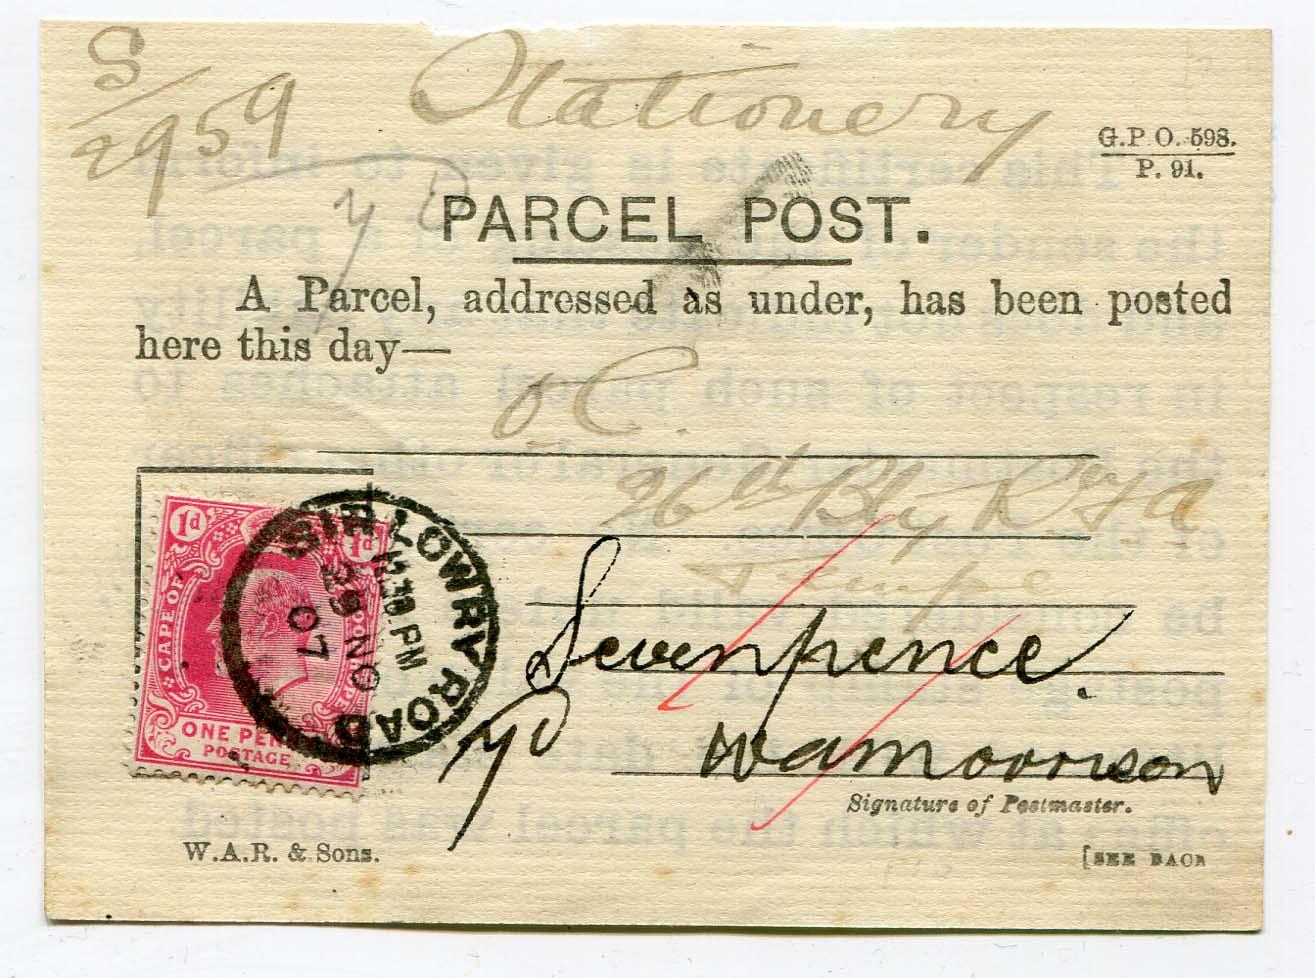 S/2959
Stationery
G.P.O. 598.
P. 91.
7 D
PARCEL POST.
A Parcel, addressed as under, has been posted
here this day—
O C.
96th Bty R
1d 1d
CAPE OF GOOD HOPE
ONE PENNY
POSTAGE
SIR LOWRY ROAD
PM
29 NO
07
Sevenpence.
7D
W A Morrison
Signature of Postmaster.
W.A.R. & Sons.
[SEE BACK